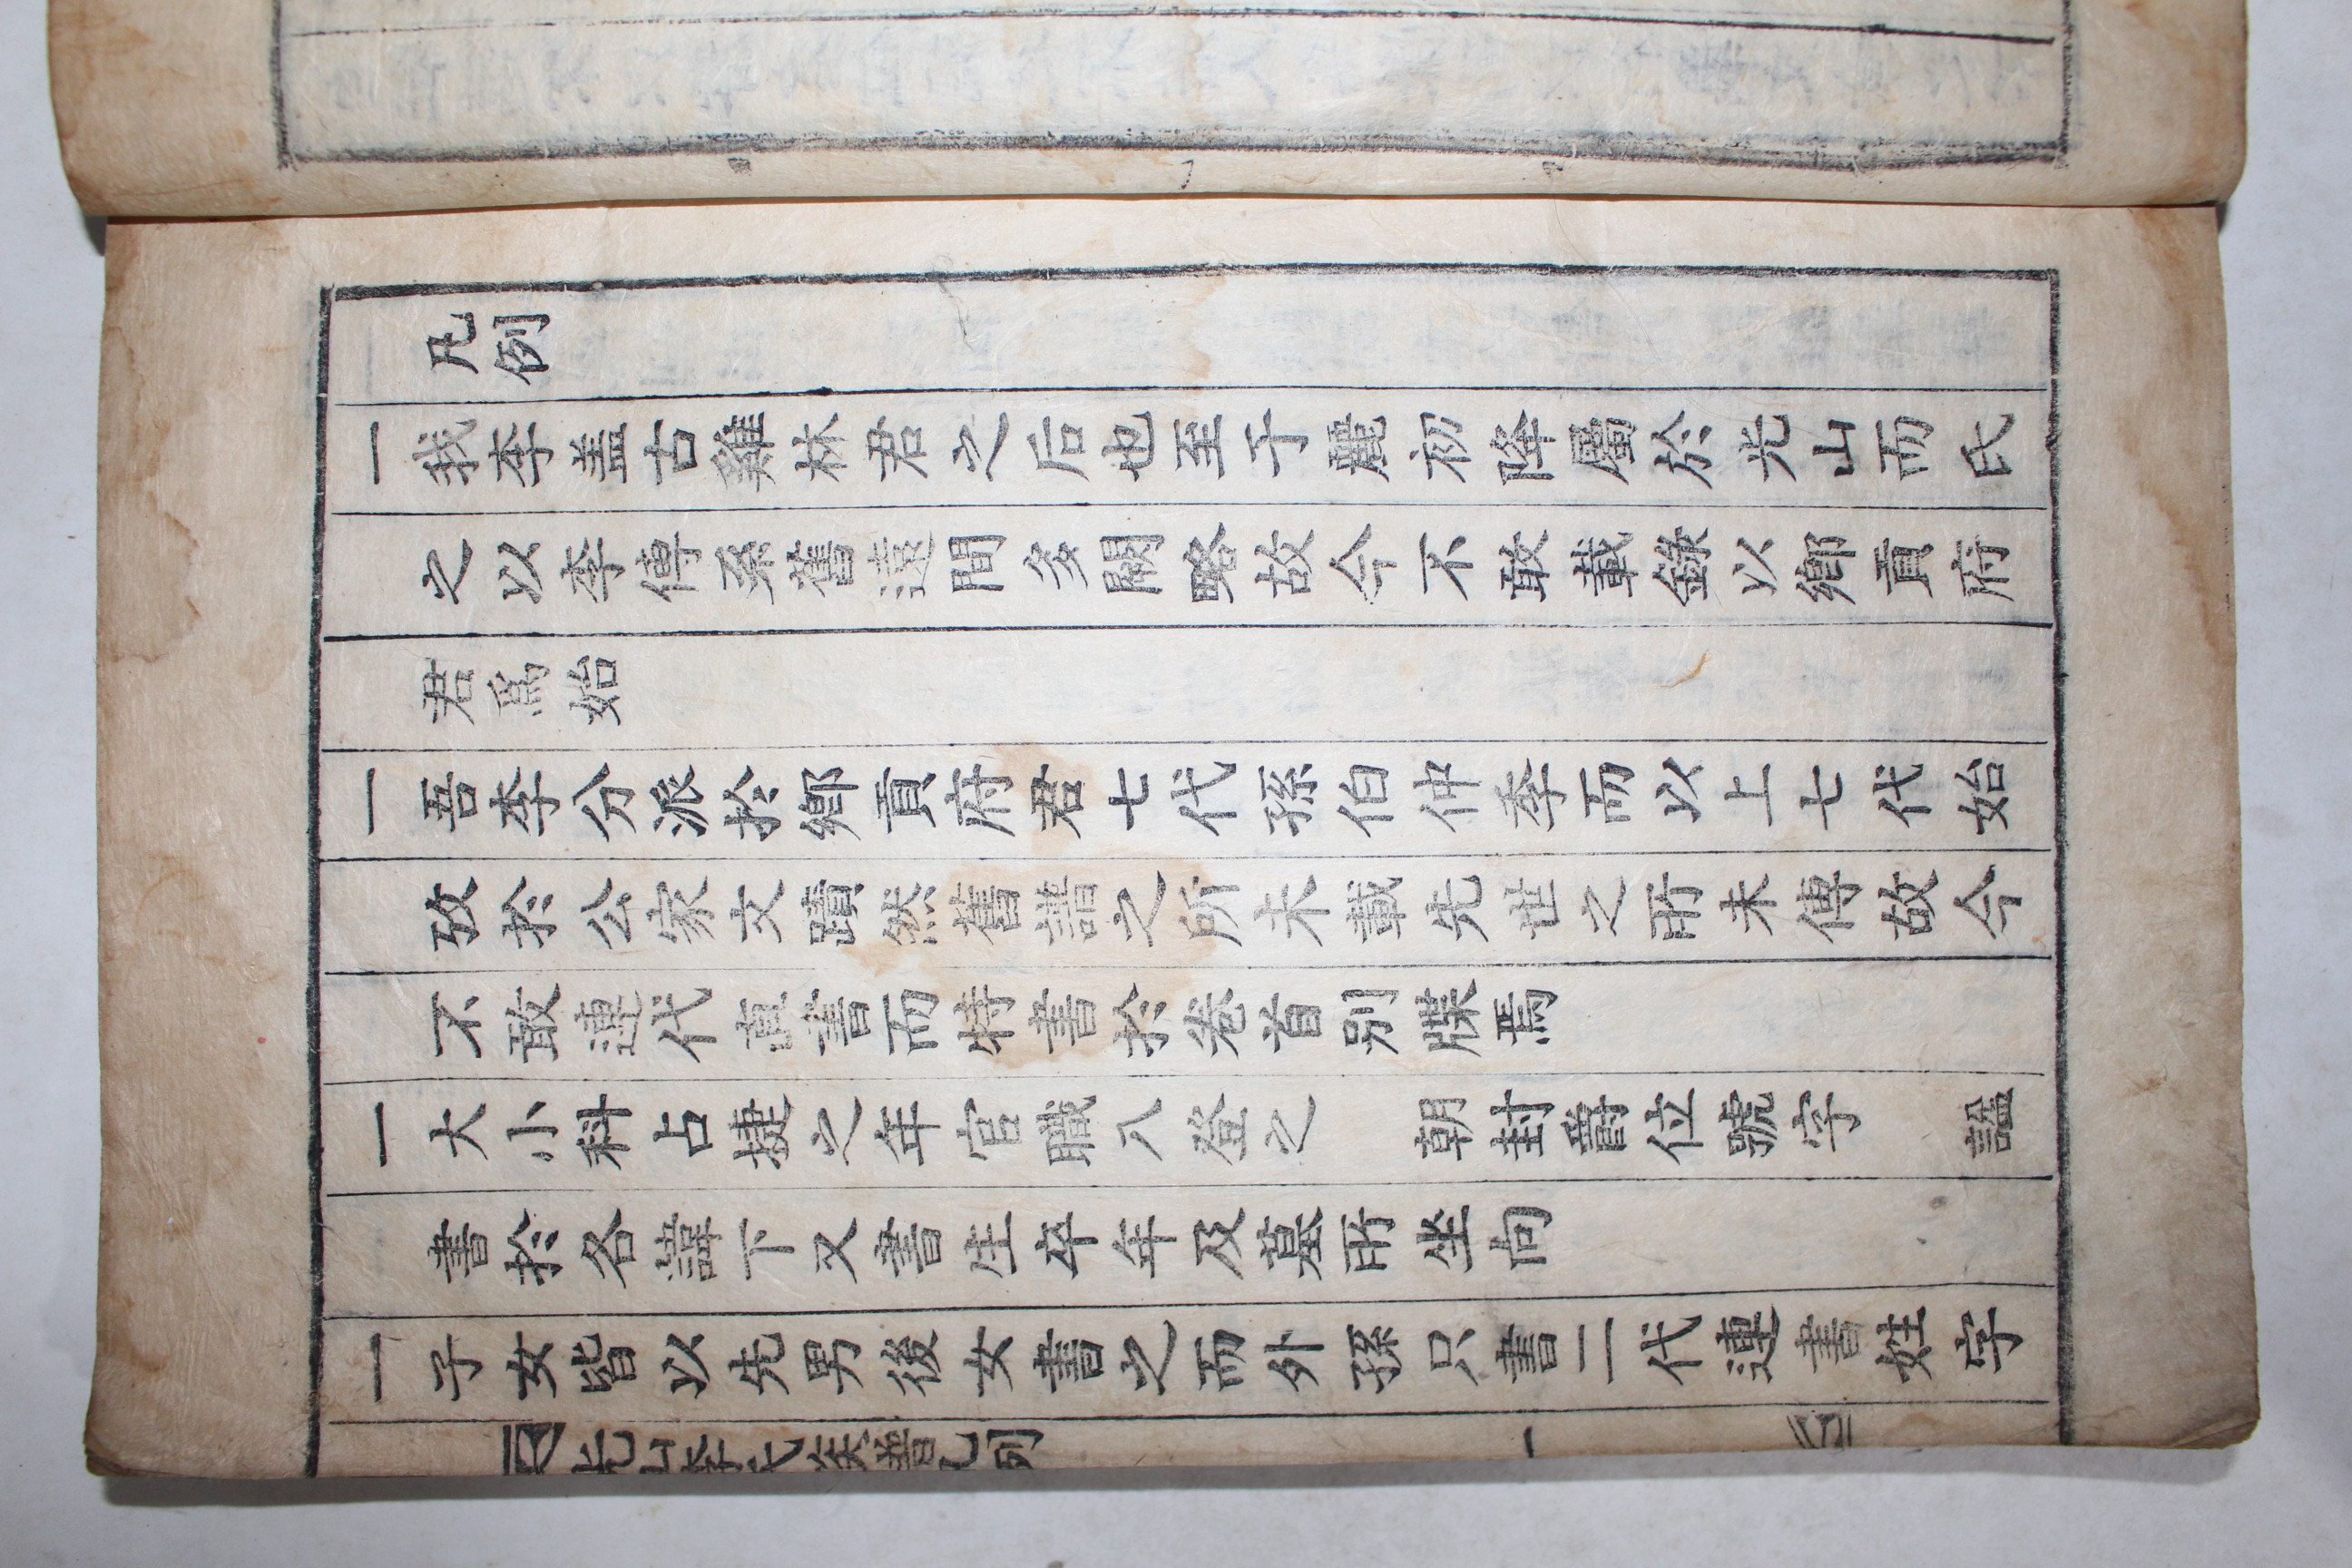 凡例
一我李盖古雞林君之后也至于麗初降屬於光山而氏
之以李傳系舊邈間多闕略故今不敢載錄以鄕貢府
君爲始
一吾李分派於鄕貢府君七代孫伯仲季而以上七代始
攷於公家文蹟然舊譜之所未載先世之所未傳故今
不敢連代直書而特書於卷首別牒焉
一大小科占捷之年官職八登之 朝封爵位號字 謚
書於名諱下又書生卒年及墓所坐向
一子女皆以先男後女書之而外孫只書二代連書姓字
光山李氏族譜凡例 一